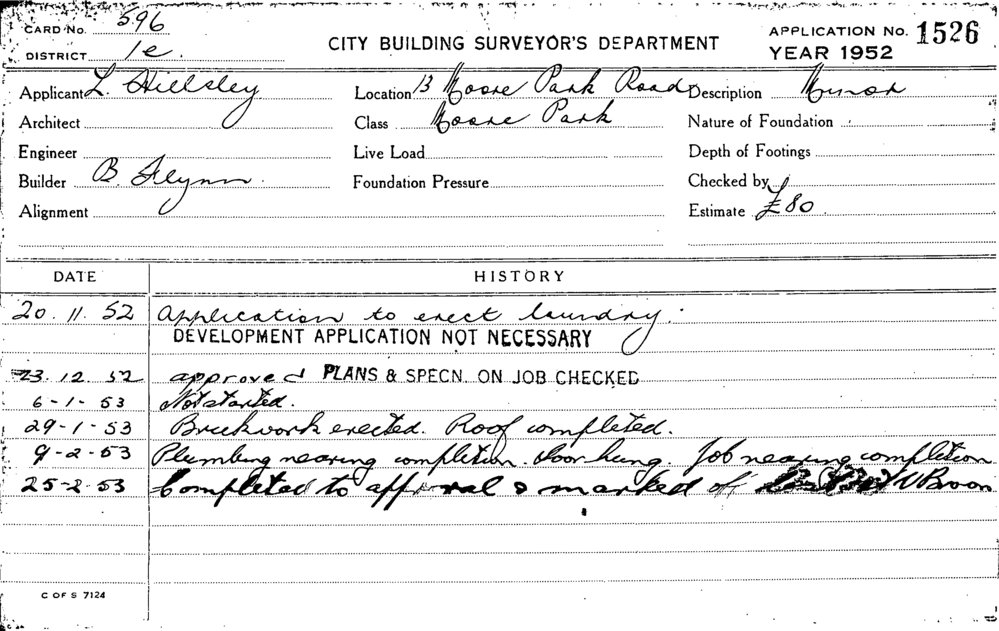 CARD No. 596
DISTRICT 1e
CITY BUILDING SURVEYOR'S DEPARTMENT
APPLICATION No. 1526
YEAR 1952
Applicant L. Hillsley Location 13 Moore Park Road Description Minor
Architect Class Moore Park Nature of Foundation
Engineer Live Load Depth of Footings
Builder B. Flynn. Foundation Pressure Checked by
Alignment Estimate £80
DATE HISTORY
20.11.52 Application to erect laundry.
DEVELOPMENT APPLICATION NOT NECESSARY
23.12.52 approved PLANS & SPECN. ON JOB CHECKED
6-1-53 Not started.
29-1-53 Brickwork erected. Roof completed.
9-2-53 Plumbing nearing completion. Door hung. Job nearing completion
25-2-53 Completed to approval & marked of
C OF S 7124